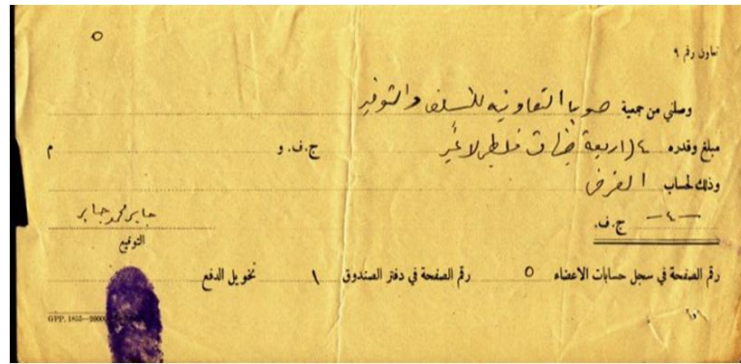 ٥
تعاون رقم ٩
وصلني من جمعية صوبا التعاونيه للتسليف والتوفير
مبلغ وقدره ٤/ اربعة جنيهات فلسط لا غير ج.ف. و م
وذلك لحساب القرض
—٤— ج.ف.
جابر محمد جابر
التوقيع
رقم الصفحة في سجل حسابات الاعضاء ٥ رقم الصفحة في دفتر الصندوق ١ تخويل الدفع
GPP. 1855—20000